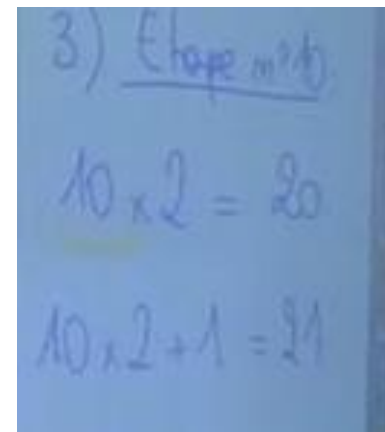 3) Etape n°10
10 x 2 = 20
10 x 2 + 1 = 21